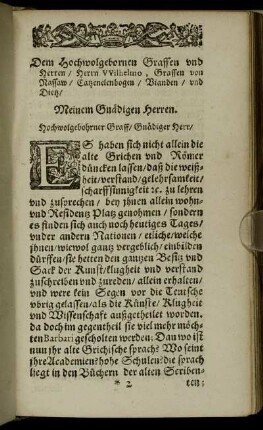 Dem Hochwolgebornen Graffen vnd
Herren / Herrn VVilhelmo, Graffen von
Nassaw / Catzenelenbogen / Vianden / vnd
Dietz /
Meinem Gnädigen Herren.
Hochwolgebohrner Graff / Gnädiger Herr /
ES haben sich nicht allein die
alte Grichen vnd Römer
düncken lassen / daß die weiß-
heit / verstand / gelehrsamkeit /
scharffsinnigkeit ꝛc. zu lehren
vnd zusprechen / bey jhnen allein wohn-
vnd Residentz Platz genohmen / sondern
es finden sich auch noch heutiges Tages /
vnder andern Nationen / etliche / welche
jhnen / wiewol gantz vergeblich / einbilden
dürffen / sie hetten den gantzen Besitz vnd
Sack der Kunst / klugheit vnd verstand
zuschreiben vnd zureden / allein erhalten /
vnd were kein Segen vor die Teutsche
vbrig gelassen / als die Künste / Klugheit
vnd Wissenschafft außgetheilet worden.
da doch im gegentheil sie viel mehr möch-
ten Barbari gescholten werden: Dan wo ist
nun jhr alte Grichische sprach? Wo seint
jhre Academien? hohe Schulen? die sprach
liegt in den Büchern der alten Scriben-
* 2 ten;